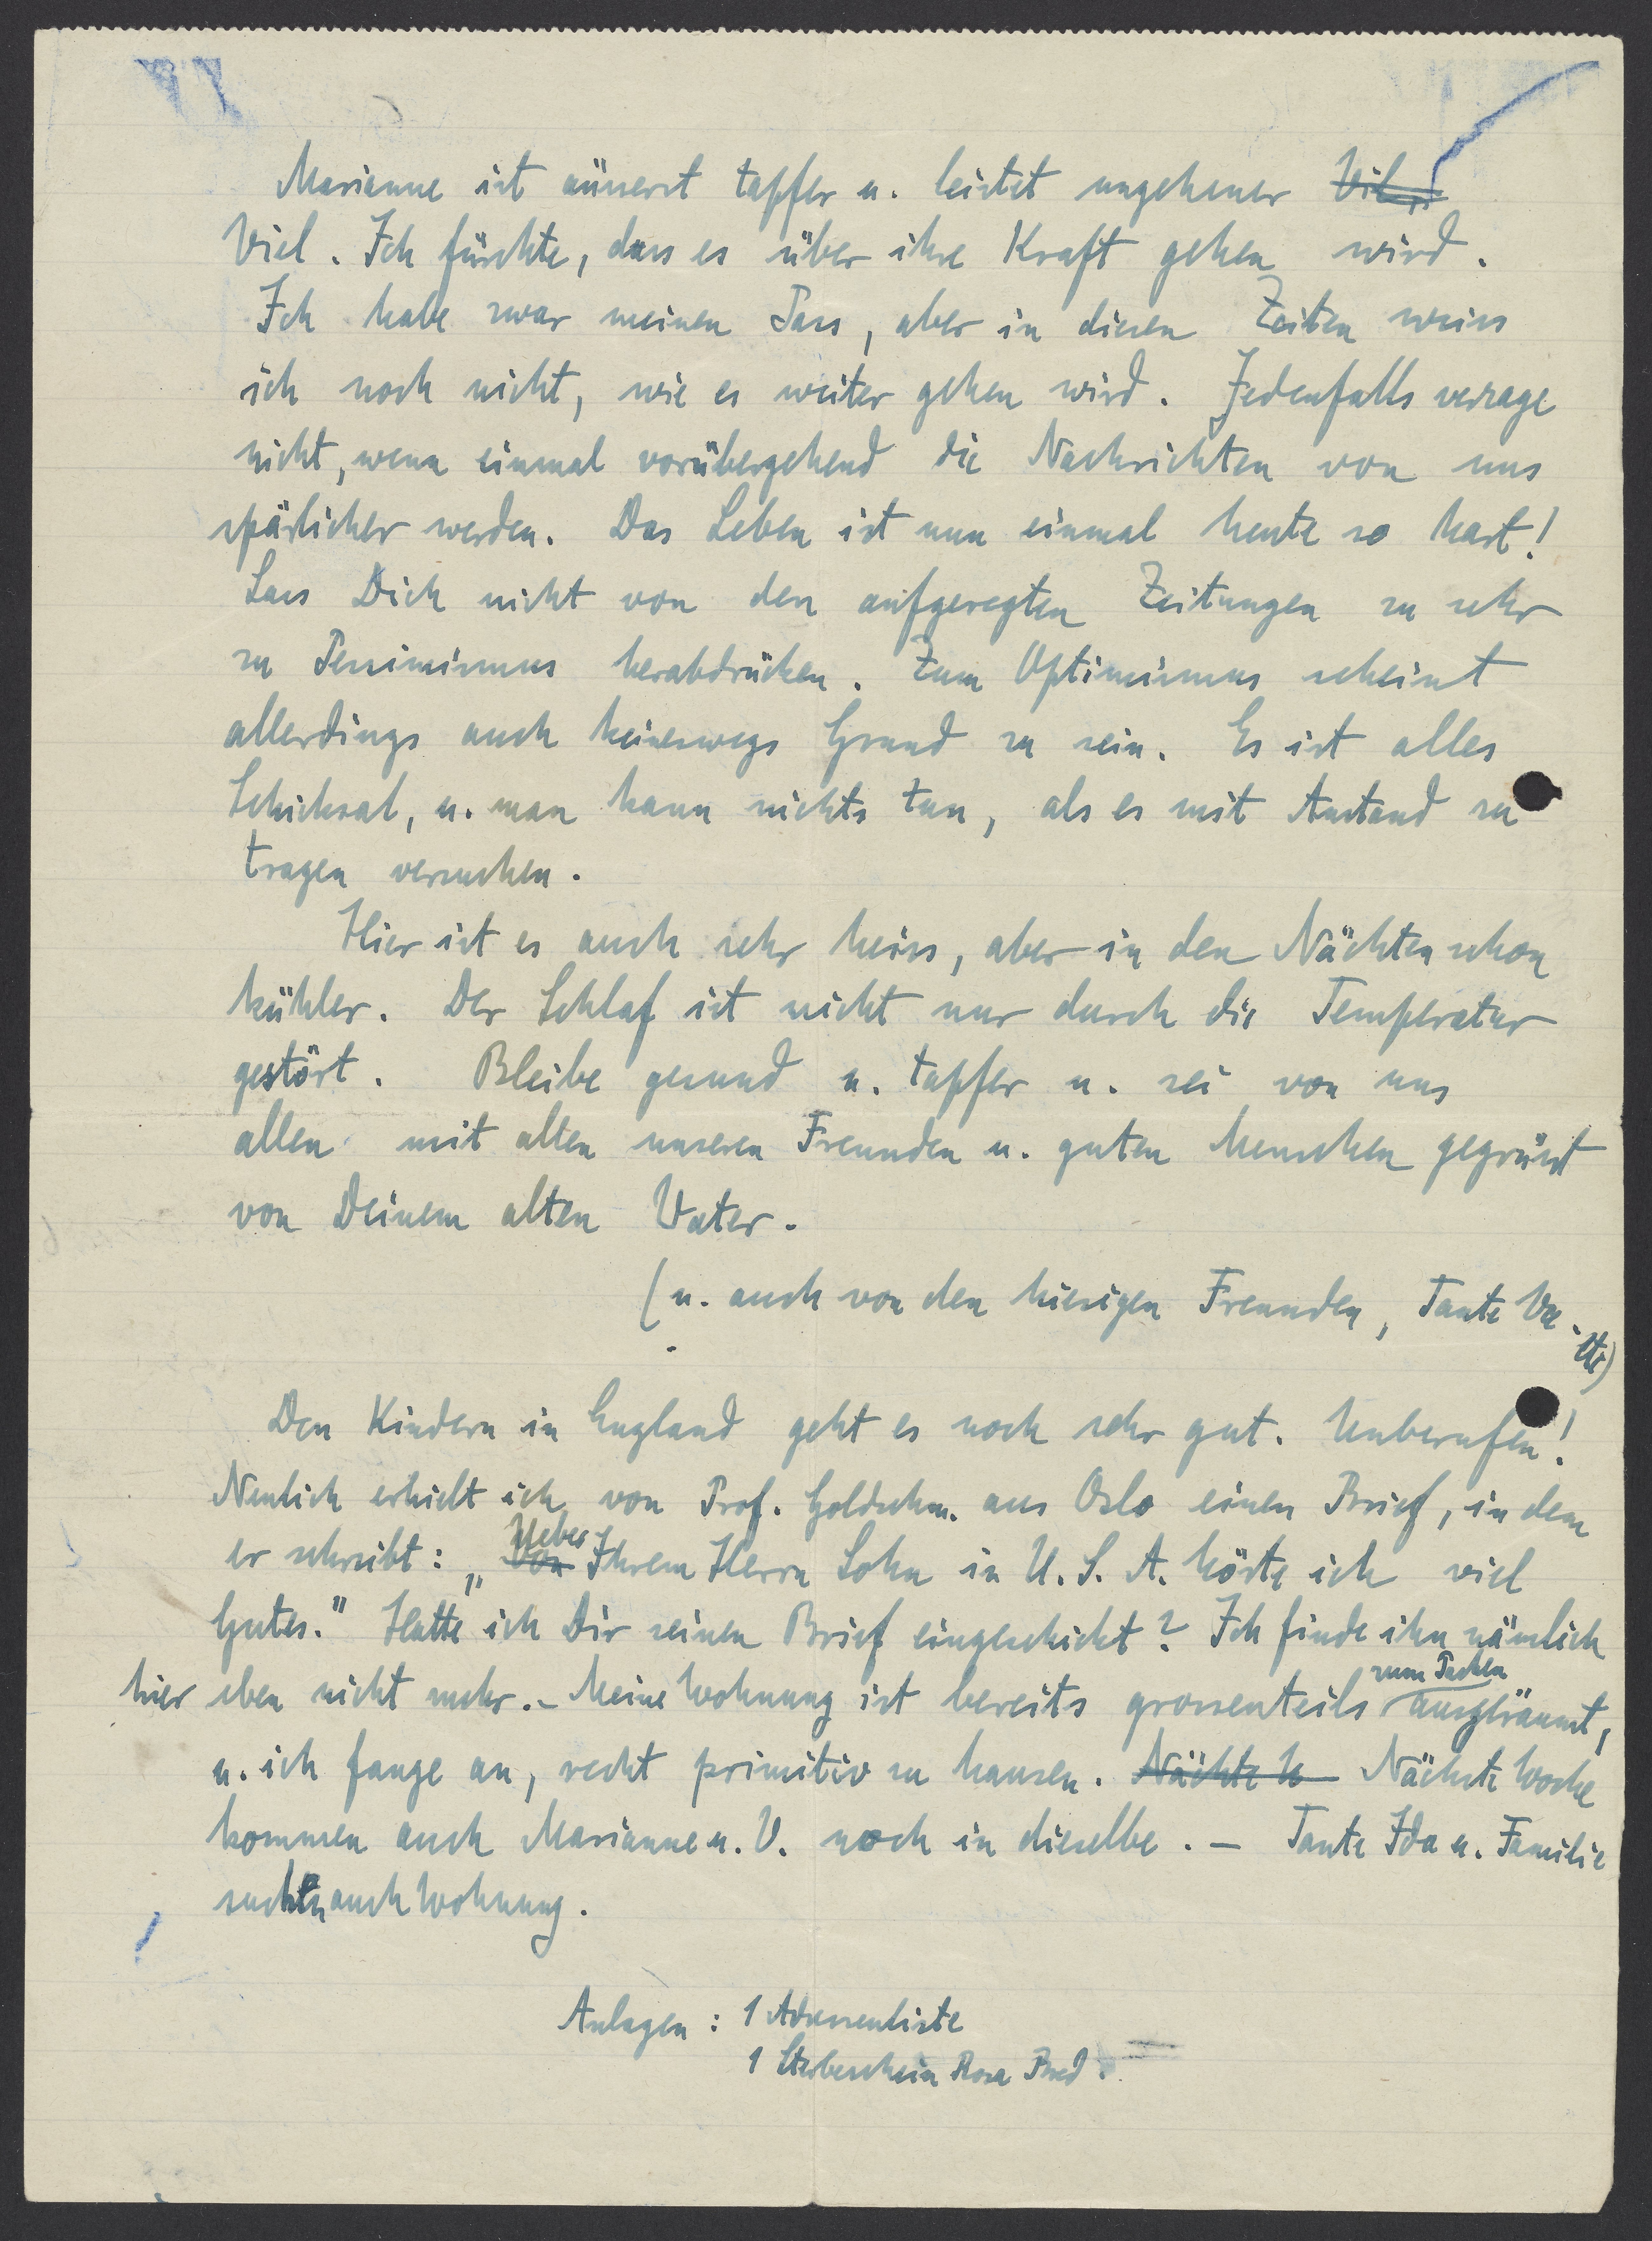 Marianne ist äusserst tapfer u. leistet ungeheuer Viel
Viel. Ich fürchte, dass es über ihre Kraft gehen wird.
Ich habe zwar meinen Pass, aber in diesen Zeiten weiss
ich noch nicht, wie es weiter gehen wird. Jedenfalls verzage
nicht, wenn einmal vorübergehend die Nachrichten von uns
spärlicher werden. Das Leben ist nun einmal heute so hart!
Lass Dich nicht von den aufgeregten Zeitungen zu sehr
zu Pessimismus herabdrücken. Zum Optimismus scheint
allerdings auch keineswegs Grund zu sein. Es ist alles
Schicksal, u. man kann nichts tun, als es mit Anstand zu
tragen versuchen.
Hier ist es auch sehr heiss, aber in den Nächten schon
kühler. Der Schlaf ist nicht nur durch die Temperatur
gestört. Bleibe gesund u. tapfer u. sei von uns
allen mit allen unseren Freunden u. guten Menschen gegrüsst
von Deinem alten Vater.
(u. auch von den hiesigen Freunden, Tante
etc)
Den Kindern in England geht es noch sehr gut. Unberufen!
Neulich erhielt ich von Prof. Goldschm. aus Oslo einen Brief, in dem
er schreibt: „Von Ueber Ihrem Herrn Sohn in U.S.A. hörte ich viel
Gutes." Hatte ich Dir seinen Brief eingeschickt? Ich finde ihn nämlich
hier eben nicht mehr. - Meine Wohnung ist bereits grossenteils zum Packen ausgeräumt,
u. ich fange an, recht primitiv zu hausen. Nächte W Nächste Woche
kommen auch Marianne u. V. noch in dieselbe. - Tante Ida u. Familie
suchen auch Wohnung.
Anlagen: 1 Adressenliste
1 Sterbeschein Rosa Pred.